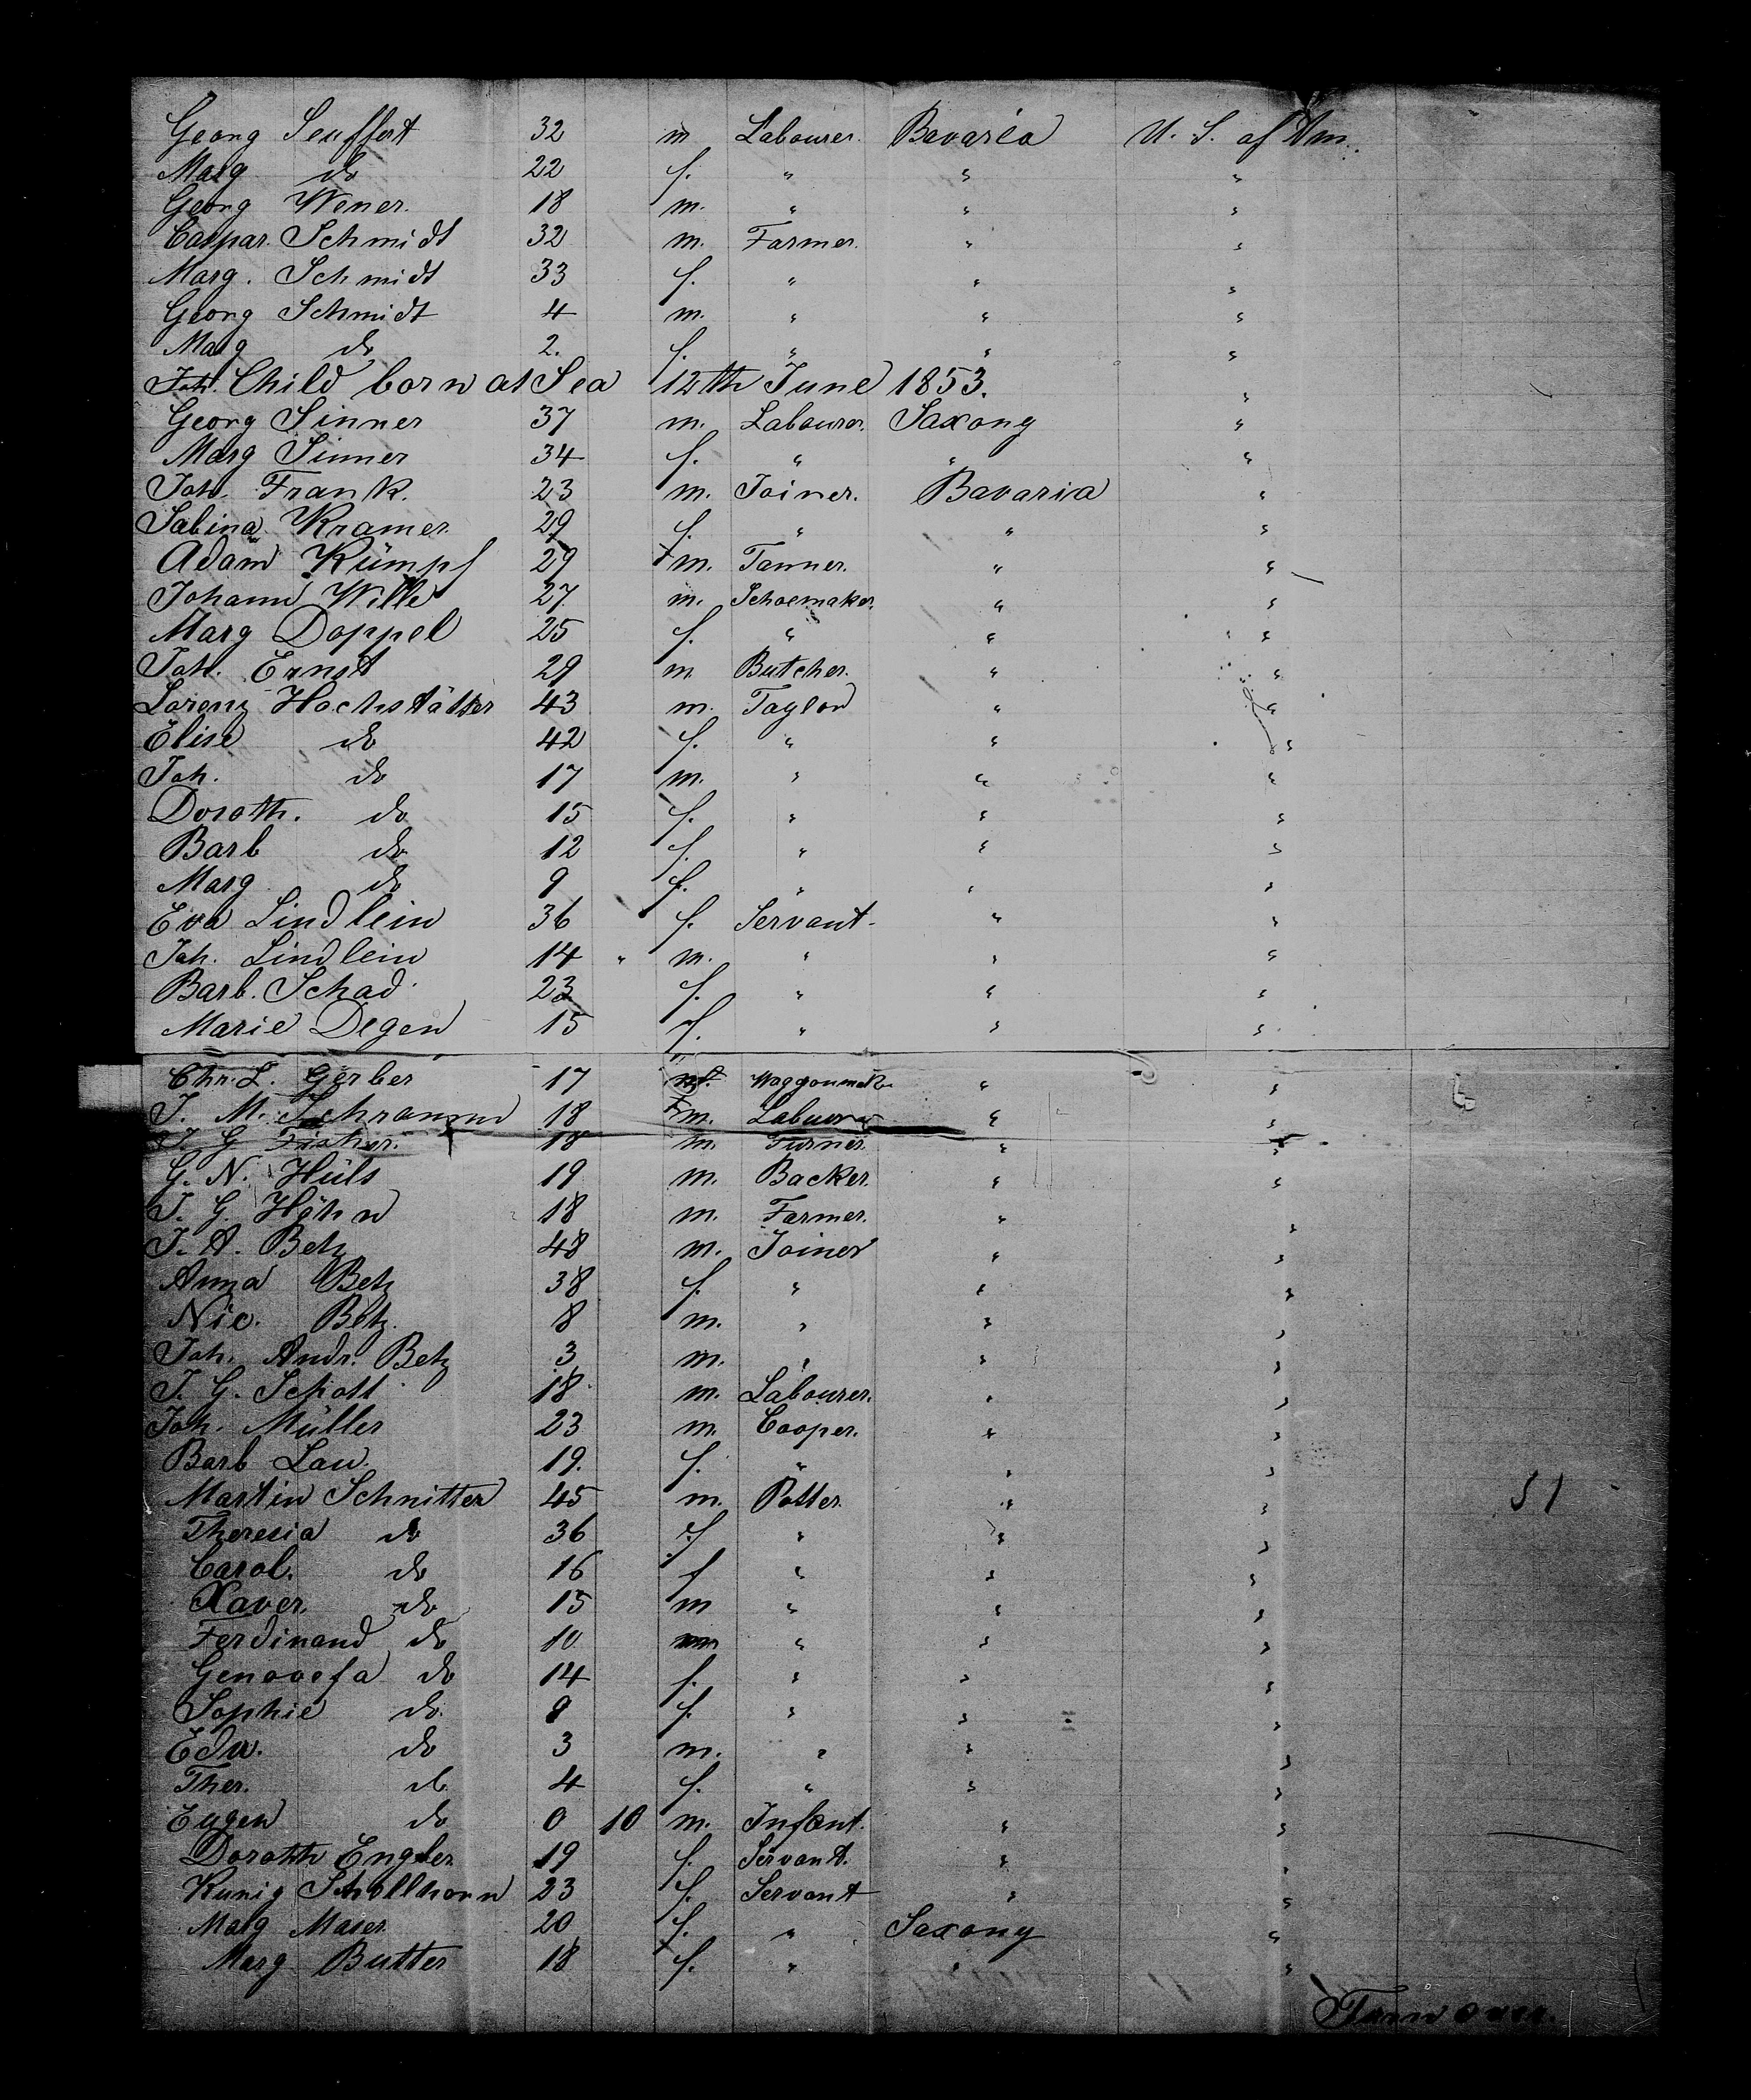 Georg Seuffert 32 m Labourer. Bavaria U. S. of Am.
Marg do 22 f. " " "
Georg Wener. 18 m. " " "
Caspar. Schmidt 32 m. Farmer. " "
Marg. Schmidt 33 f. " " "
Georg Schmidt 4 m. " " "
Marg do 2. f. " " "
Child born at Sea 12th June 1853. "
Georg Sinner 37 m. Labourer. Saxony "
Marg Sinner 34 f. " " "
Joh. Frank. 23 m. Joiner. Bavaria "
Sabina Kramer. 29 f. " " "
Adam Kümpf 29 m. Tanner. " "
Johann Wille 27. m. Schoemaker. " "
Marg Doppel 25 f. " " "
Joh. Ernst 29 m Butcher. " "
Lorenz Hochstätter 43 m. Taylor " "
Elise do 42 f. " " "
Joh. do 17 m. " " "
Doroth. do 15 f. " " "
Barb do 12 f. " " "
Marg do 9 f. " " "
Eva Lindlein 36 f. Servant " "
Joh. Lindlein 14 " m. " " "
Barb. Schad 23 f. " " "
Marie Degen 15 f. " " "
Chr. L. Gerber 17 Waggonmak. " "
J. M. Schramm 18 m. Labuor " "
J. G Fischer. 18 m. Turner. " "
G. N. Hüls 19 m. Backer. " "
J. G. Höhn 18 m. Farmer. " "
J. A. Betz 48 m. Joiner " "
Anna Betz 38 f. " " "
Nic. Betz. 8 m. " " "
Joh. Andr. Betz 3 m. " " "
J. G. Schott 18. m. Labourer. " "
Joh. Müller 23 m. Cooper. " "
Barb Lau. 19. f. " " "
Martin Schnitter 45 m. Potter. " " 51
Theresia do 36 f " " "
Carol. do 16 f " " "
Xaver. do 15 m " " "
Ferdinand do 10 m " " "
Genovefa do 14 f. " " "
Sophie do. 9 f. " " "
Edw. do 3 m. " " "
Ther. do 4 f. " " "
Eugen do 0 10 m. Infant. " "
Doroth Engler. 19 f. Servant. " "
Kunig Schollhorn 23 f. Servant " "
Marg Maser. 20 f. " Saxony "
Marg Butter 18 f. " " "
Turn over.